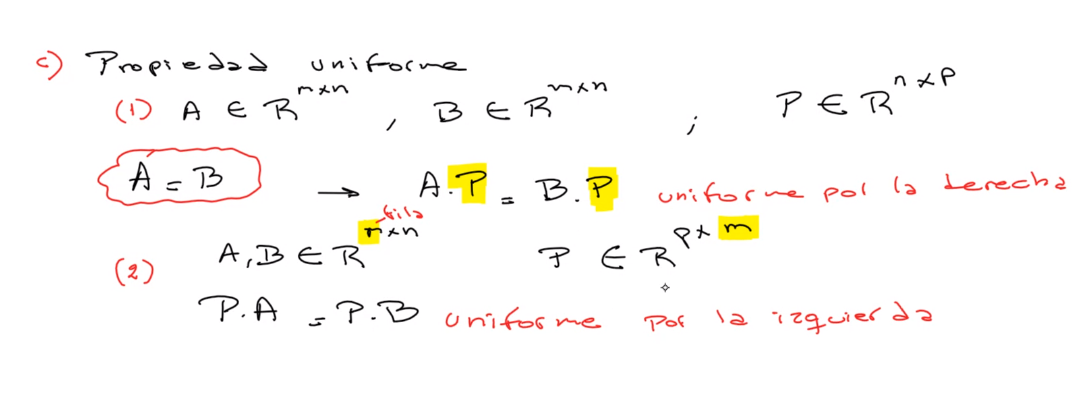 c) Propiedad uniforme
(1) A ∈ R^{m×n} , B ∈ R^{m×n} ; P ∈ R^{n×p}
A = B → A.P = B.P uniforme por la derecha
fila
(2) A,B ∈ R^{m×n} P ∈ R^{p×m}
P.A = P.B uniforme por la izquierda